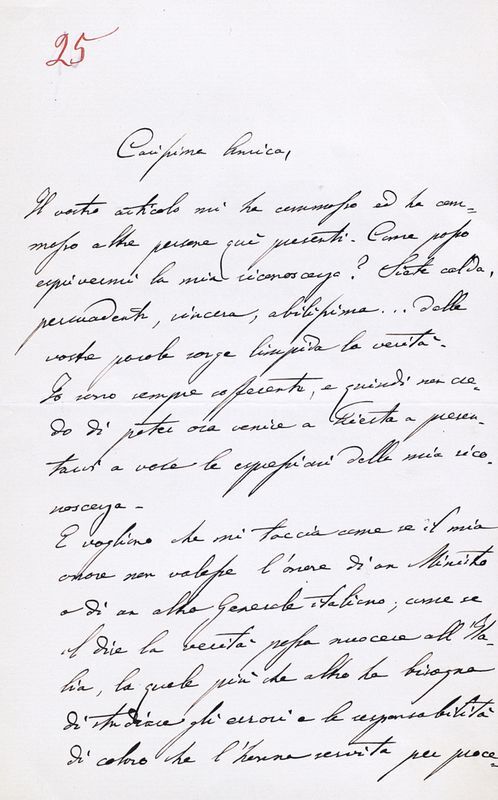 25
Carissima Amica,
Il vostro articolo mi ha commosso ed ha com-
mosso altre persone quì presenti. Come posso
esprimervi la mia riconoscenza? Siete calda,
persuadente, sincera, abilissima... dalle
vostre parole sorge limpida la verità.
Io sono sempre sofferente, e quindi non cre-
do di poter ora venire a Fiesta a presen-
tarvi a voce le espressioni della mia rico-
noscenza.
E vogliono che mi taccia come se il mio
onore non valesse l'onore di un Ministro
o di un altro Generale italiano; come se
il dire la verità possa nuocere all'Ita-
lia, la quale più che altro ha bisogno
di studiare gli errori e le responsabilità
di coloro che l'hanno servita per proce-